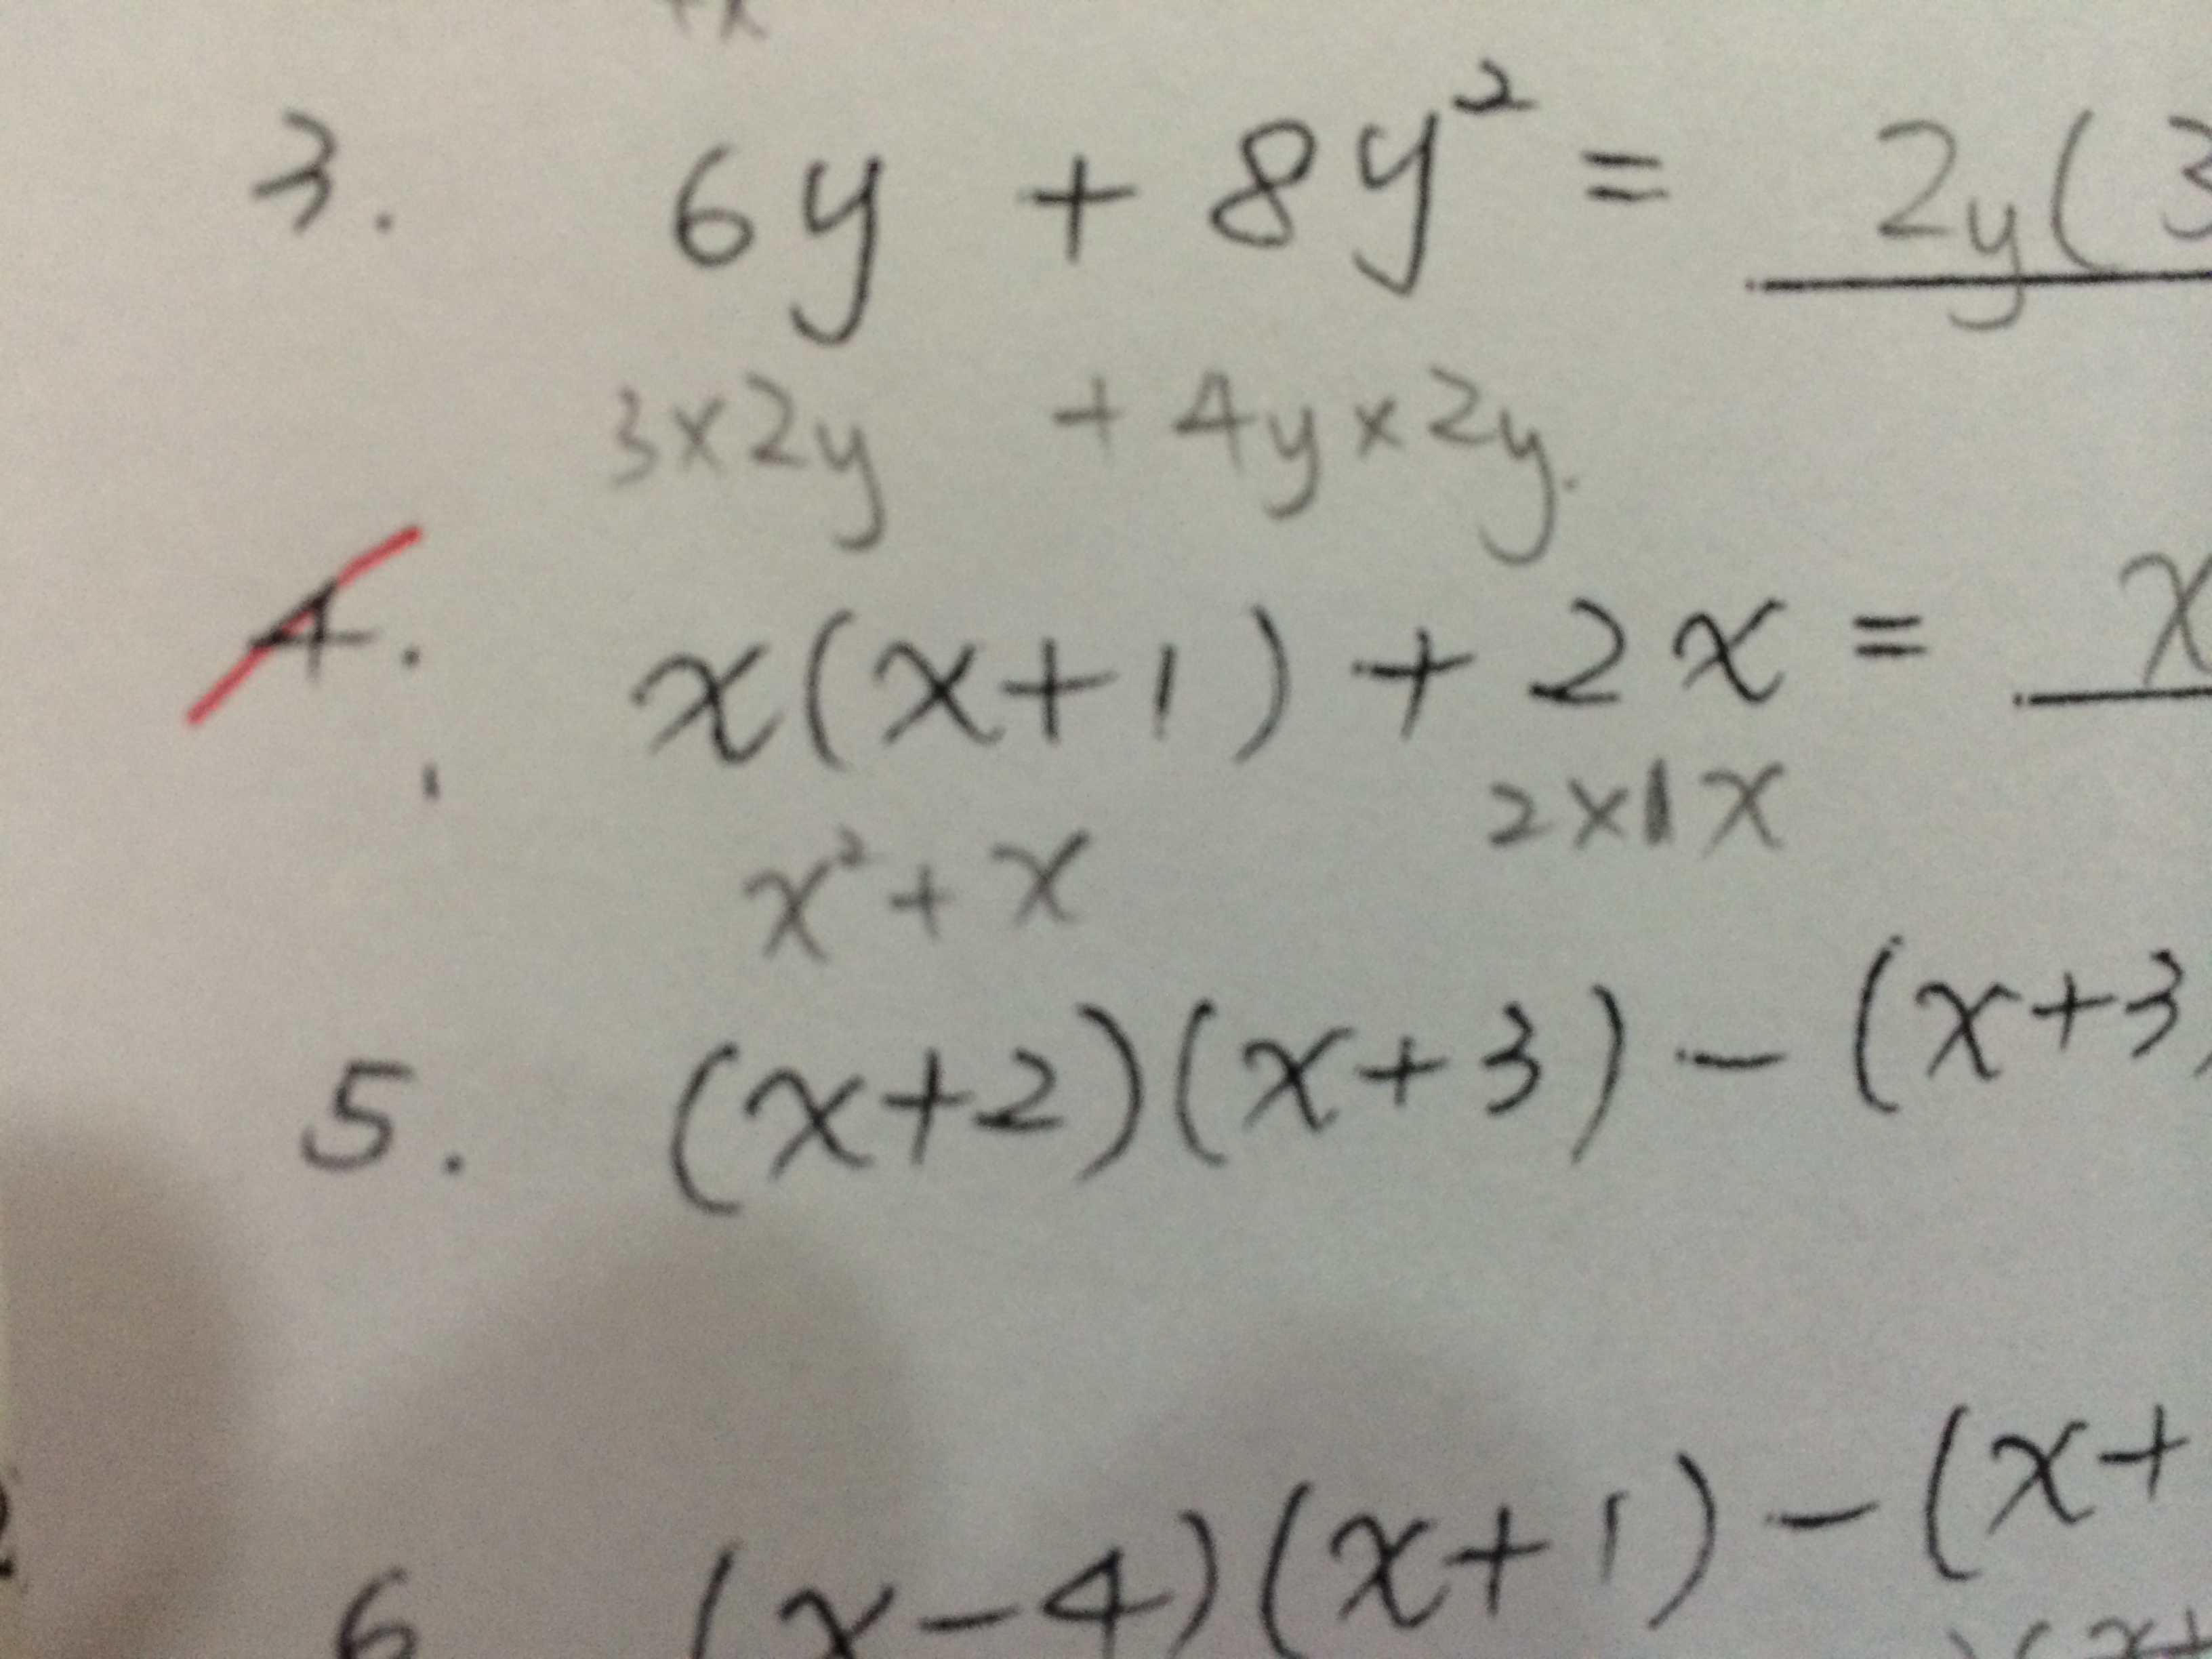 +x
3. 6y + 8y² = 2y(3
3×2y + 4y×2y.
4. x(x+1) + 2x = x
2×1x
x² + x
5. (x+2)(x+3) - (x+3)
6 (x-4)(x+1) - (x+
(x+